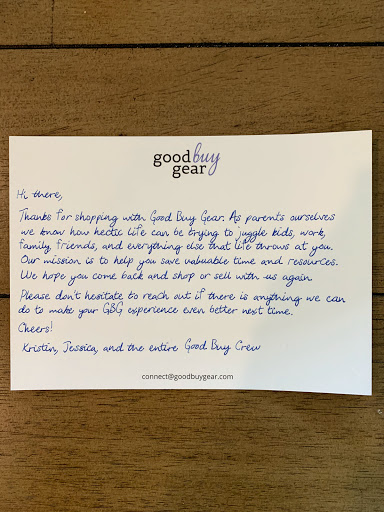 good buy
gear
Hi there,
Thanks for shopping with Good Buy Gear. As parents ourselves
we know how hectic life can be trying to juggle kids, work,
family, friends, and everything else that life throws at you.
Our mission is to help you save valuable time and resources.
We hope you come back and shop or sell with us again.
Please don't hesitate to reach out if there is anything we can
do to make your GBG experience even better next time.
Cheers!
Kristin, Jessica, and the entire Good Buy Crew
connect@goodbuygear.com